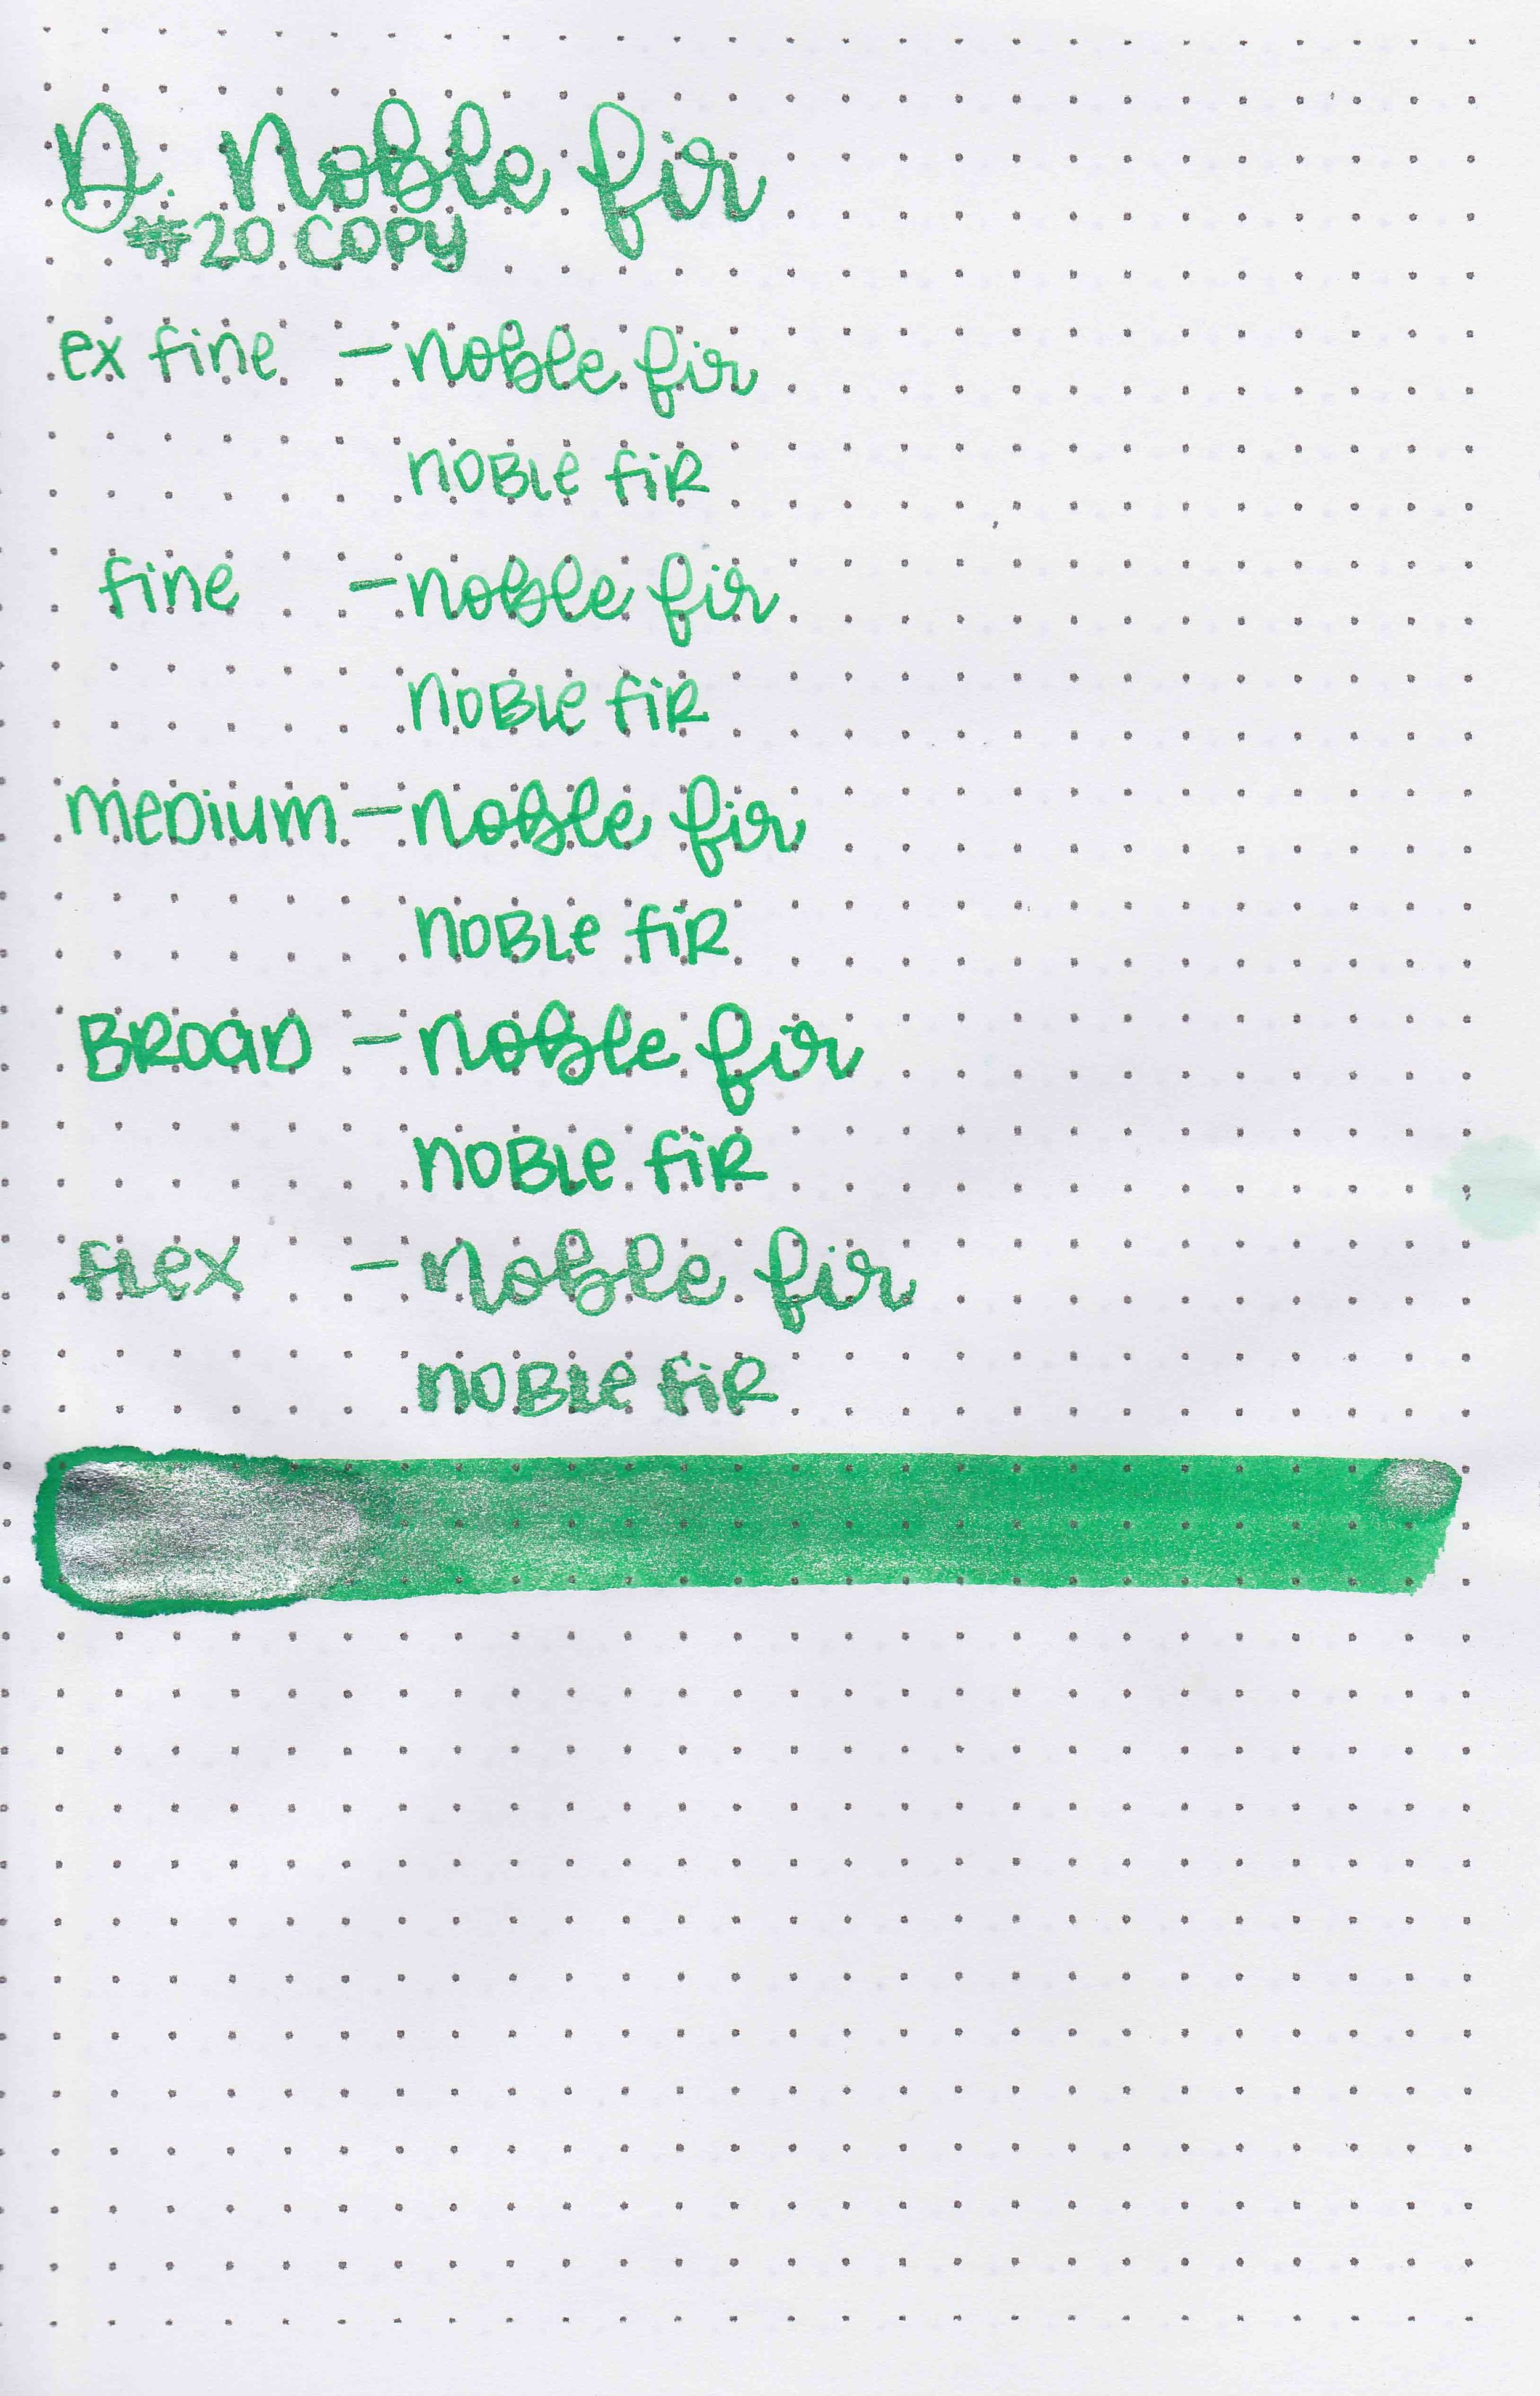 D. Noble fir
#20 COPY
ex fine - noble fir
NOBLE fiR
fine - noble fir
NOBLE fiR
meDium - noble fir
NOBLe fiR
BROaD - noble fir
NOBLe fiR
fLex - noble fir
NOBLe fiR